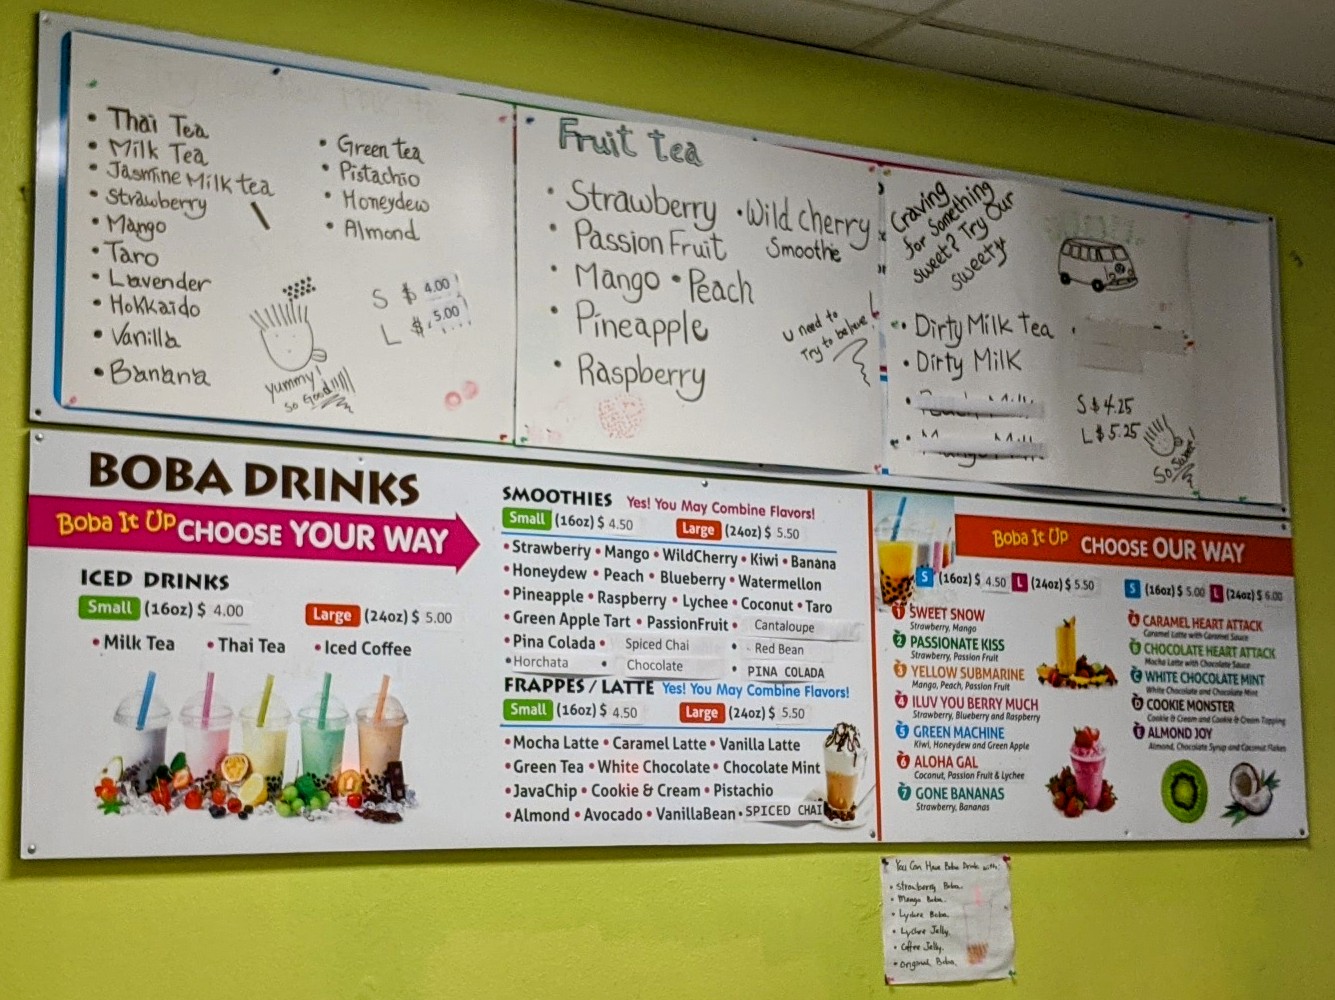 • Thai Tea
• Milk Tea
• Jasmine Milk tea
• Strawberry
• Mango
• Taro
• Lavender
• Hokkaido
• Vanilla
• Banana
• Green tea
• Pistachio
• Honeydew
• Almond
S $ 4.00
L $ 5.00
yummy!
so Good!!!!
Fruit tea
• Strawberry
• Passion Fruit
• Mango • Peach
• Pineapple
• Raspberry
• Wild cherry
Smoothie
u need to
Try to believe!
Craving
for Something
sweet? Try Our
sweety
• Dirty Milk Tea
• Dirty Milk
S $ 4.25
L $ 5.25
So Sweet!
BOBA DRINKS
Boba It Up CHOOSE YOUR WAY
ICED DRINKS
Small (16oz) $ 4.00 Large (24oz) $ 5.00
• Milk Tea • Thai Tea • Iced Coffee
SMOOTHIES Yes! You May Combine Flavors!
Small (16oz) $ 4.50 Large (24oz) $ 5.50
• Strawberry • Mango • WildCherry • Kiwi • Banana
• Honeydew • Peach • Blueberry • Watermellon
• Pineapple • Raspberry • Lychee • Coconut • Taro
• Green Apple Tart • PassionFruit • Cantaloupe
• Pina Colada • Spiced Chai • Red Bean
• Horchata • Chocolate • PINA COLADA
FRAPPES / LATTE Yes! You May Combine Flavors!
Small (16oz) $ 4.50 Large (24oz) $ 5.50
• Mocha Latte • Caramel Latte • Vanilla Latte
• Green Tea • White Chocolate • Chocolate Mint
• JavaChip • Cookie & Cream • Pistachio
• Almond • Avocado • VanillaBean • SPICED CHAI
Boba It Up CHOOSE OUR WAY
S (16oz) $ 4.50 L (24oz) $ 5.50
1 SWEET SNOW
Strawberry, Mango
2 PASSIONATE KISS
Strawberry, Passion Fruit
3 YELLOW SUBMARINE
Mango, Peach, Passion Fruit
4 ILUV YOU BERRY MUCH
Strawberry, Blueberry and Raspberry
5 GREEN MACHINE
Kiwi, Honeydew and Green Apple
6 ALOHA GAL
Coconut, Passion Fruit & Lychee
7 GONE BANANAS
Strawberry, Bananas
S (16oz) $ 5.00 L (24oz) $ 6.00
A CARAMEL HEART ATTACK
Caramel Latte with Caramel Sauce
B CHOCOLATE HEART ATTACK
Mocha Latte with Chocolate Sauce
C WHITE CHOCOLATE MINT
White Chocolate and Chocolate Mint
D COOKIE MONSTER
Cookie & Cream and Cookie & Cream Topping
E ALMOND JOY
Almond, Chocolate Syrup and Coconut Flakes
You Can Have Boba Drink with:
• Strawberry Boba.
• Mango Boba.
• Lychee Boba.
• Lychee Jelly.
• Coffee Jelly.
• Original Boba.